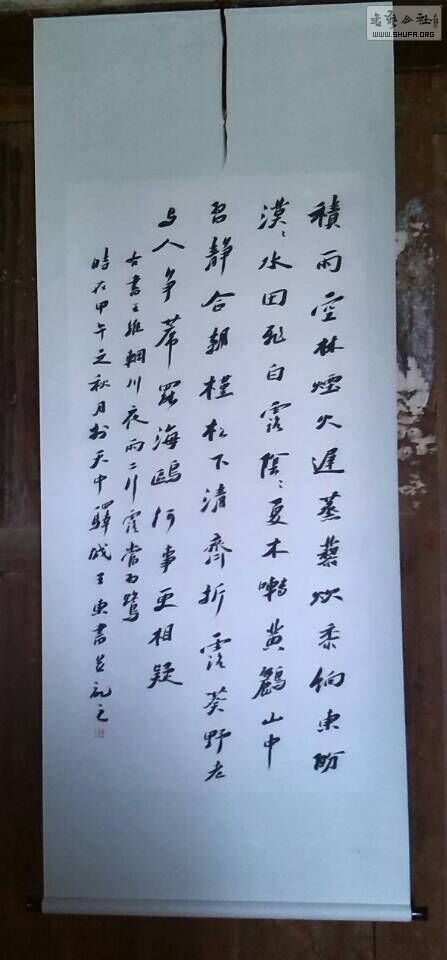 積雨空林煙火遲蒸藜炊黍餉東菑
漠々水田飛白露陰々夏木囀黃鸝山中
習靜合朝槿松下清齊折露葵野老
与人爭席罷海鷗何事更相疑
右書王維輞川夜雨二行露當為鷺
時在甲午之秋月於天中驛城王東書並記之
書藝公社
WWW.SHUFA.ORG